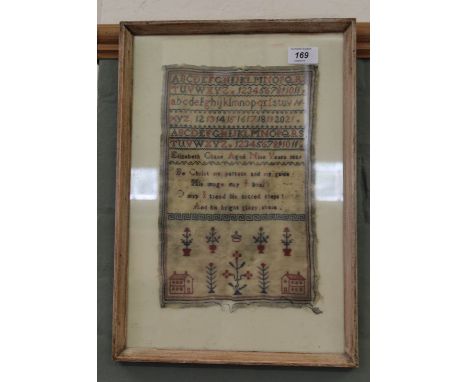 169
ABCDEFGHIJKLMNOPQRS
TUVWXYZ 1234567891011
abcdefghijklmnopqrstuvw
xyz 12131415161718192021
ABCDEFGHIJKLMNOPQRS
TUVWXYZ 1234567891011
Elizabeth Aged Nine Years
Be Christ my pattern and my guide
His image may I bear
O may I tread his sacred steps
And his bright glory share